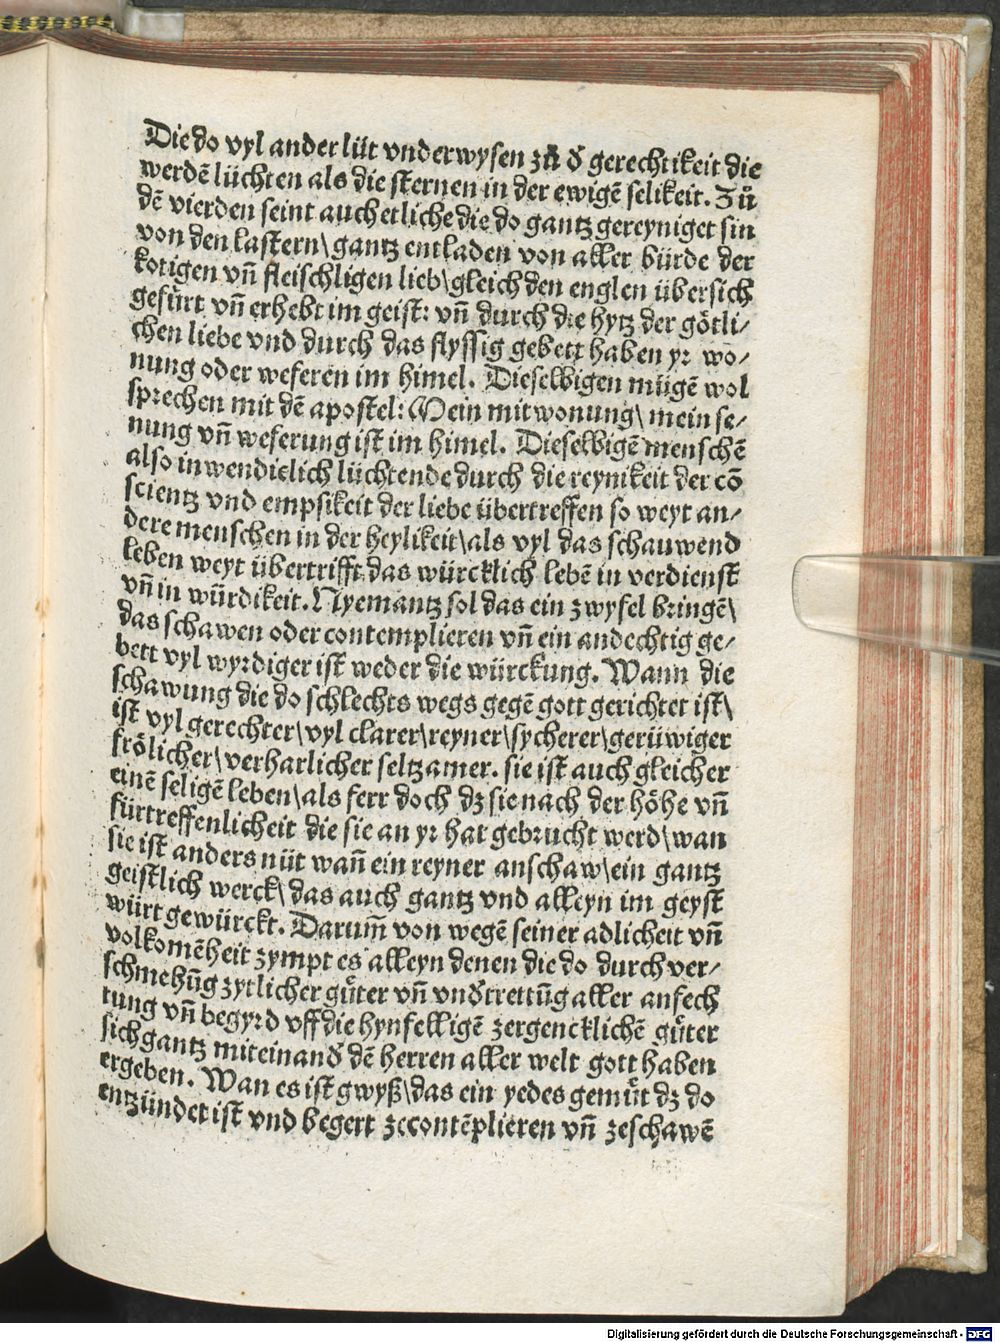 Die do vyl ander lüt vnderwysen zů d̕ gerechtikeit die
werdē lüchten als die sternen in der ewigē selikeit. Zů
dē vierden seint auch etliche die do gantz gereyniget sin
von den lastern\ gantz entladen von aller bürde der
kotigen vñ fleischligen lieb\ gleich den englen übersich
gefürt vñ erhebt im geist: vñ durch die hytz der götli/
chen liebe vnd durch das flyssig gebett haben yr wo/
nung oder weferen im himel. Dieselbigen mügē wol
sprechen mit dē apostel: Mein mitwonung\ mein se/
nung vñ weferung ist im himel. Dieselbigē menschē
also inwendielich lüchtende durch die reynikeit der cō
scientz vnd empsikeit der liebe übertreffen so weyt an/
dere menschen in der heylikeit\ als vyl das schauwend
leben weyt übertrifft das würcklich lebē in verdienst
vñ in würdikeit. Nyemantz sol das ein zwyfel bringē\
das schawen oder contemplieren vñ ein andechtig ge/
bett vyl wyrdiger ist weder die würckung. Wann die
schawung die do schlechts wegs gegē gott gerichtet ist\
ist vyl gerechter\ vyl clarer\ reyner\ sycherer\ gerüwiger
frölicher\ verharlicher seltzamer. sie ist auch gleicher
einē seligē leben\ als ferr doch dz sie nach der höhe vñ
fürtreffenlicheit die sie an yr hat gebrucht werd\ wan
sie ist anders nüt wañ ein reyner anschaw\ ein gantz
geistlich werck\ das auch gantz vnd alleyn im geyst
würt gewürckt. Darum̄ von wegē seiner adlicheit vñ
volkomēheit zympt es alleyn denen die do durch ver/
schmehūg zytlicher gůter vñ vnd̕trettūg aller anfech
tung vñ begyrd vff die hynfelligē zergencklichē gůter
sich gantz miteinand̕ dē herren aller welt gott haben
ergeben. Wan es ist gwyß\ das ein yedes gemůt dz do
entzündet ist vnd begert zecontēplieren vñ zeschawē
Digitalisierung gefördert durch die Deutsche Forschungsgemeinschaft - DFG